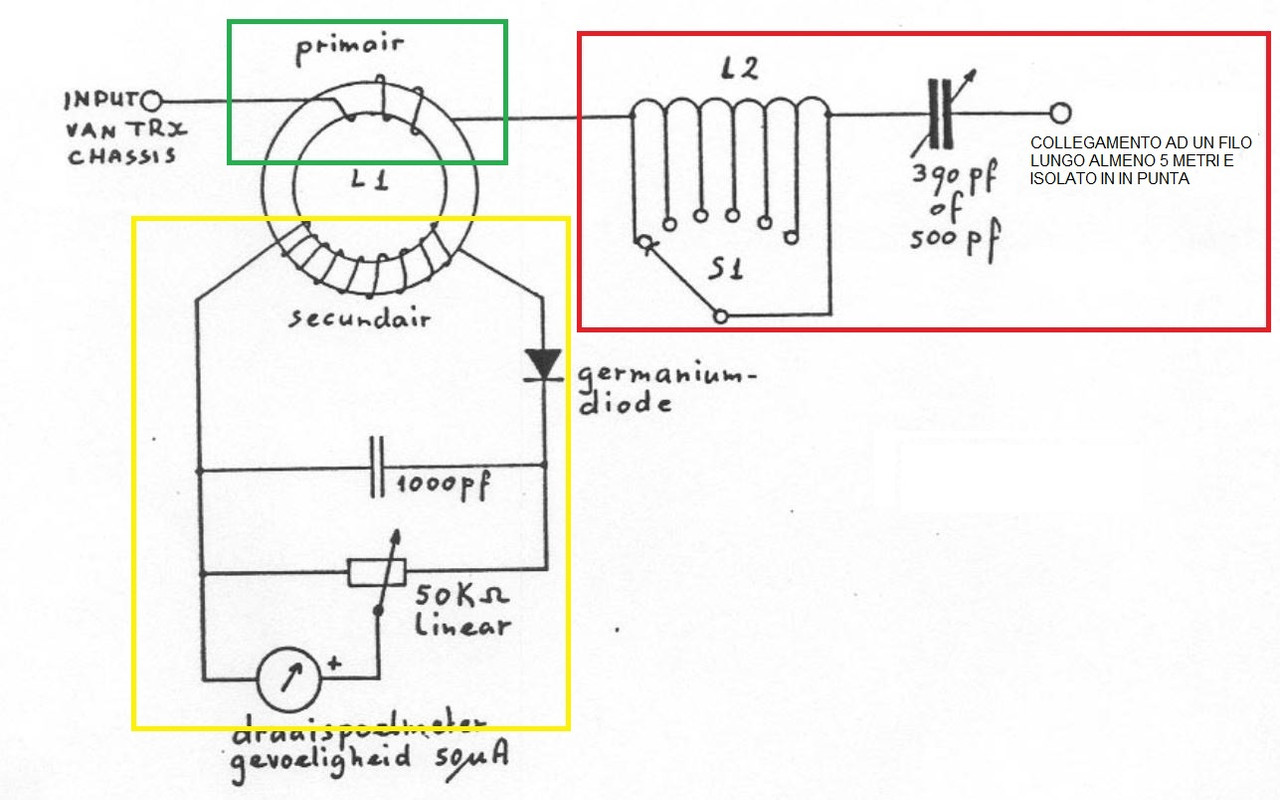 primair
INPUT
VAN TRX
CHASSIS
L1
L2
S1
390 pf
of
500 pf
COLLEGAMENTO AD UN FILO
LUNGO ALMENO 5 METRI E
ISOLATO IN IN PUNTA
secundair
germanium-
diode
1000 pf
50KΩ
Linear
+
draaispoelmeter
gevoeligheid 50µA